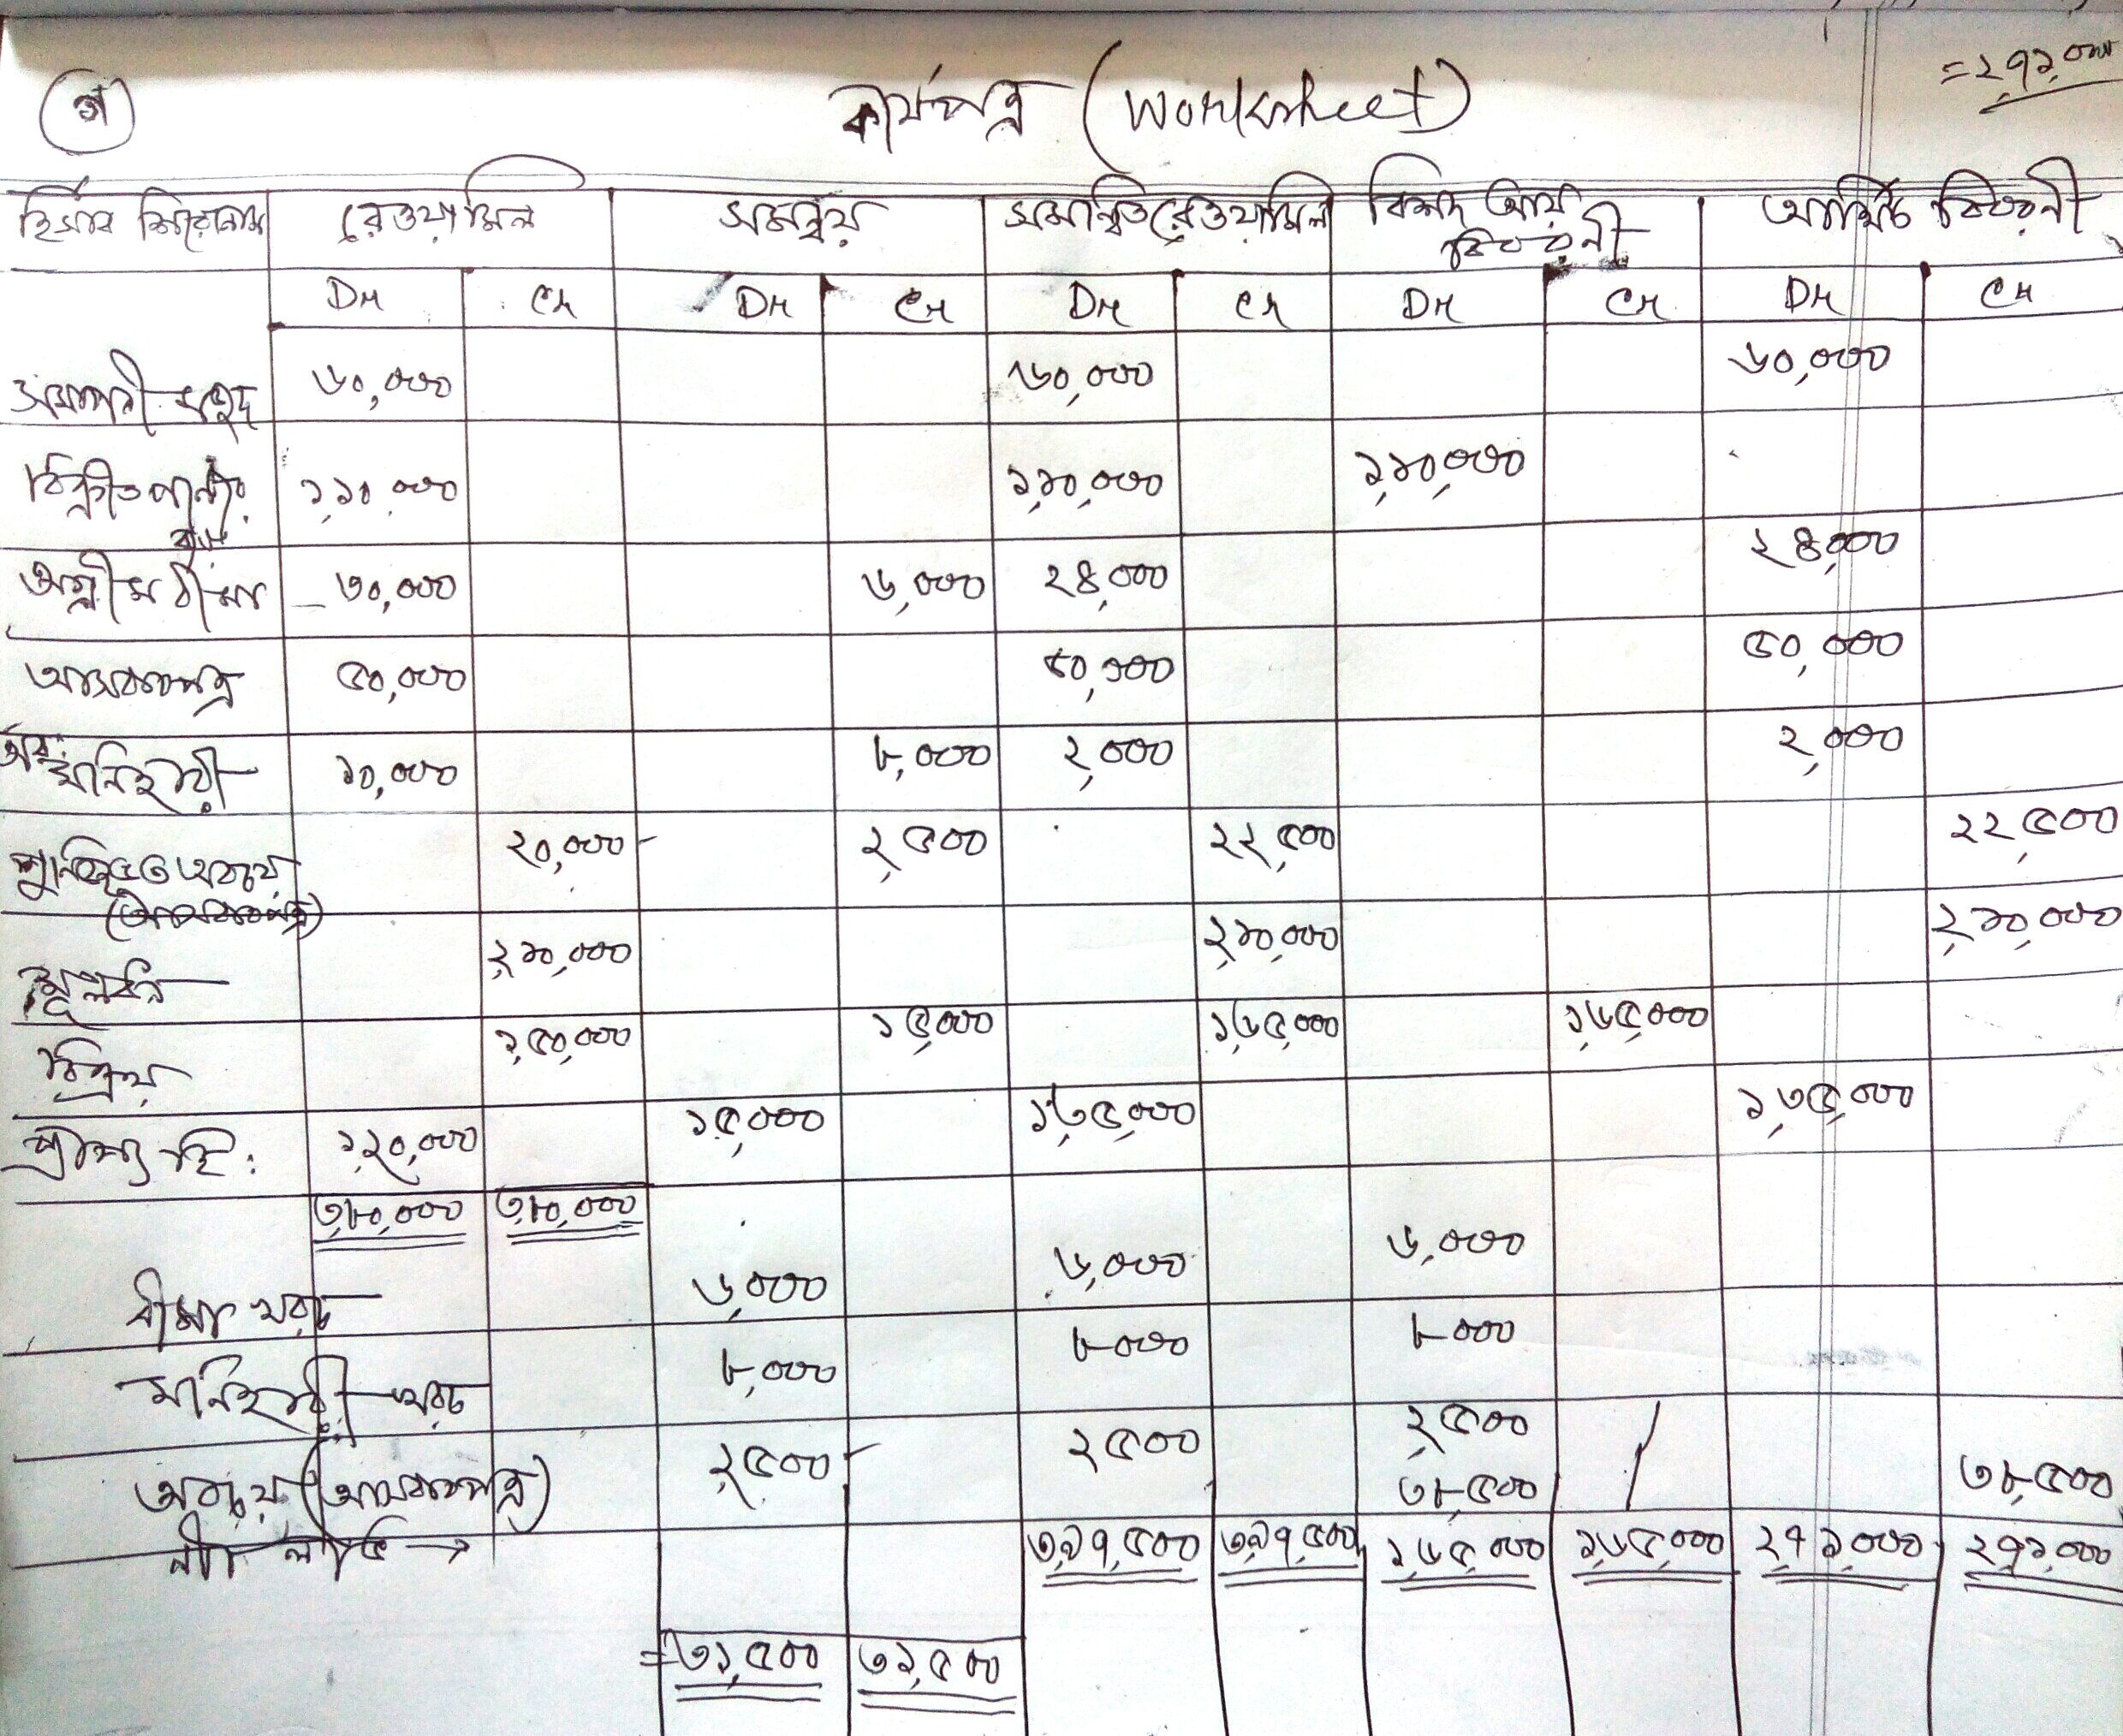 = ২,৭১,০০০
গ
কার্যপত্র (Worksheet)
হিসাব শিরোনাম রেওয়ামিল সমন্বয় সমন্বিত রেওয়ামিল বিশদ আয় বিবরনী আর্থিক বিবরনী
Dr Cr Dr Cr Dr Cr Dr Cr Dr Cr
সমাপনী মজুদ ৬০,০০০ ৬০,০০০ ৬০,০০০
বিক্রীত পন্যের ব্যয় ১,১০,০০০ ১,১০,০০০ ১,১০,০০০
অগ্রীম বীমা ৩০,০০০ ৬,০০০ ২৪,০০০ ২৪,০০০
আসবাবপত্র ৫০,০০০ ৫০,০০০ ৫০,০০০
অব: মনিহারী ১০,০০০ ৮,০০০ ২,০০০ ২,০০০
পুঞ্জিভূত অবচয় (আসবাবপত্র) ২০,০০০ ২,৫০০ ২২,৫০০ ২২,৫০০
মূলধন ২,১০,০০০ ২,১০,০০০ ২,১০,০০০
বিক্রয় ১,৫০,০০০ ১৫,০০০ ১,৬৫,০০০ ১,৬৫,০০০
প্রাপ্য হি: ১,২০,০০০ ১৫,০০০ ১,৩৫,০০০ ১,৩৫,০০০
৩,৮০,০০০ ৩,৮০,০০০
বীমা খরচ ৬,০০০ ৬,০০০ ৬,০০০
মনিহারী খরচ ৮,০০০ ৮০০০ ৮০০০
অবচয় (আসবাবপত্র) ২,৫০০ ২৫০০ ২,৫০০
নীট লাভ → ৩৮,৫০০ ৩৮,৫০০
৩,৯৭,৫০০ ৩,৯৭,৫০০ ১,৬৫,০০০ ১,৬৫,০০০ ২,৭১,০০০ ২,৭১,০০০
= ৩১,৫০০ ৩১,৫০০